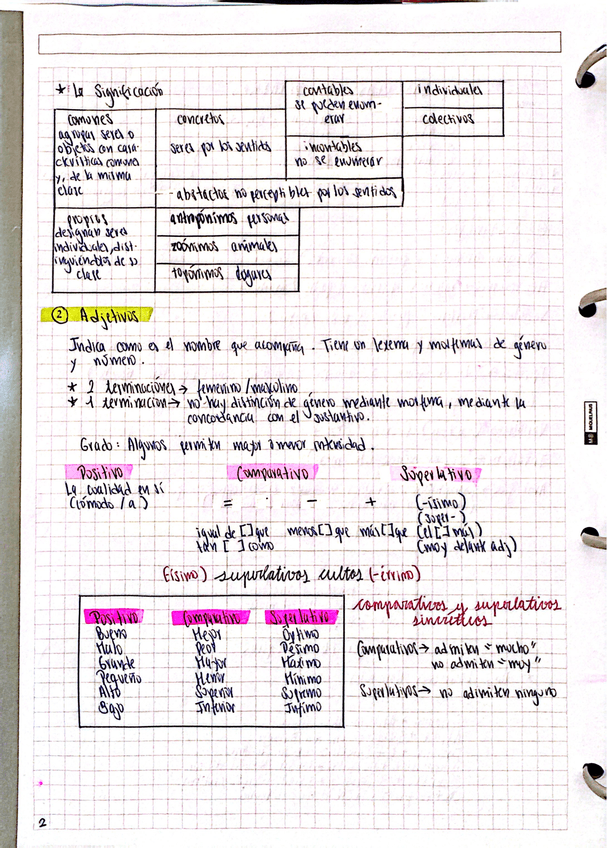 * La Significación
comunes
agrupar seres o
objetos con cara-
cterísticas comunes
y, de la misma
clase
concretos
seres por los sentidos
contables
se pueden enum-
erar
individuales
colectivos
incontables
no se enumerar
- abstactos no perceptibles por los sentidos
propios
designan seres
individuales, dist-
inguiendolos de su
clase
antropónimos personas
zoónimos animales
topónimos lugares
② Adjetivos
Indica como es el nombre que acompaña. Tiene un lexema y morfemas de género
y número.
* 2 terminaciones → femenino / masculino
* 1 terminacion → no hay distinción de género mediante morfema, mediante la
concordancia con el sustantivo.
Grado: Algunos permiten mayor o menor intensidad.
Positivo Comparativo Superlativo
La cualidad en sí
(cómodo / a)
= - +
(-ísimo)
(super-)
igual de [] que menos [] que más [] que (el [] más)
tan [ ] como (muy delante adj)
(ísimo) superlativos cultos (-érrimo)
Positivo Comparativo Superlativo
Bueno Mejor Óptimo
Malo Peor Pésimo
Grande Mayor Máximo
Pequeño Menor Mínimo
Alto Superior Supremo
Bajo Inferior Ínfimo
comparativos y superlativos
sincréticos
Comparativos → admiten "mucho"
no admiten "muy"
Superlativos → no admiten ninguno
2
MIQUELRIUS